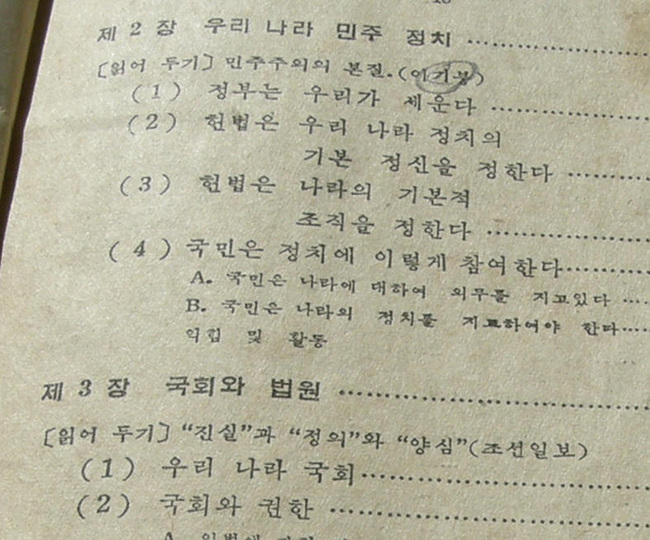 제 2 장 우리 나라 민주 정치 ……………
[읽어 두기] 민주주의의 본질.(이기붕)
(1) 정부는 우리가 세운다 ……………
(2) 헌법은 우리 나라 정치의
기본 정신을 정한다 ………
(3) 헌법은 나라의 기본적
조직을 정한다 ……………
(4) 국민은 정치에 이렇게 참여한다………
A. 국민은 나라에 대하여 의무를 지고있다 ……
B. 국민은 나라의 정치를 지도하여야 한다……
익힘 및 활동
제 3 장 국회와 법원 ……………………
[읽어 두기] “진실”과 “정의”와 “양심”(조선일보)
(1) 우리 나라 국회……………………
(2) 국회와 권한 ……………………
A.